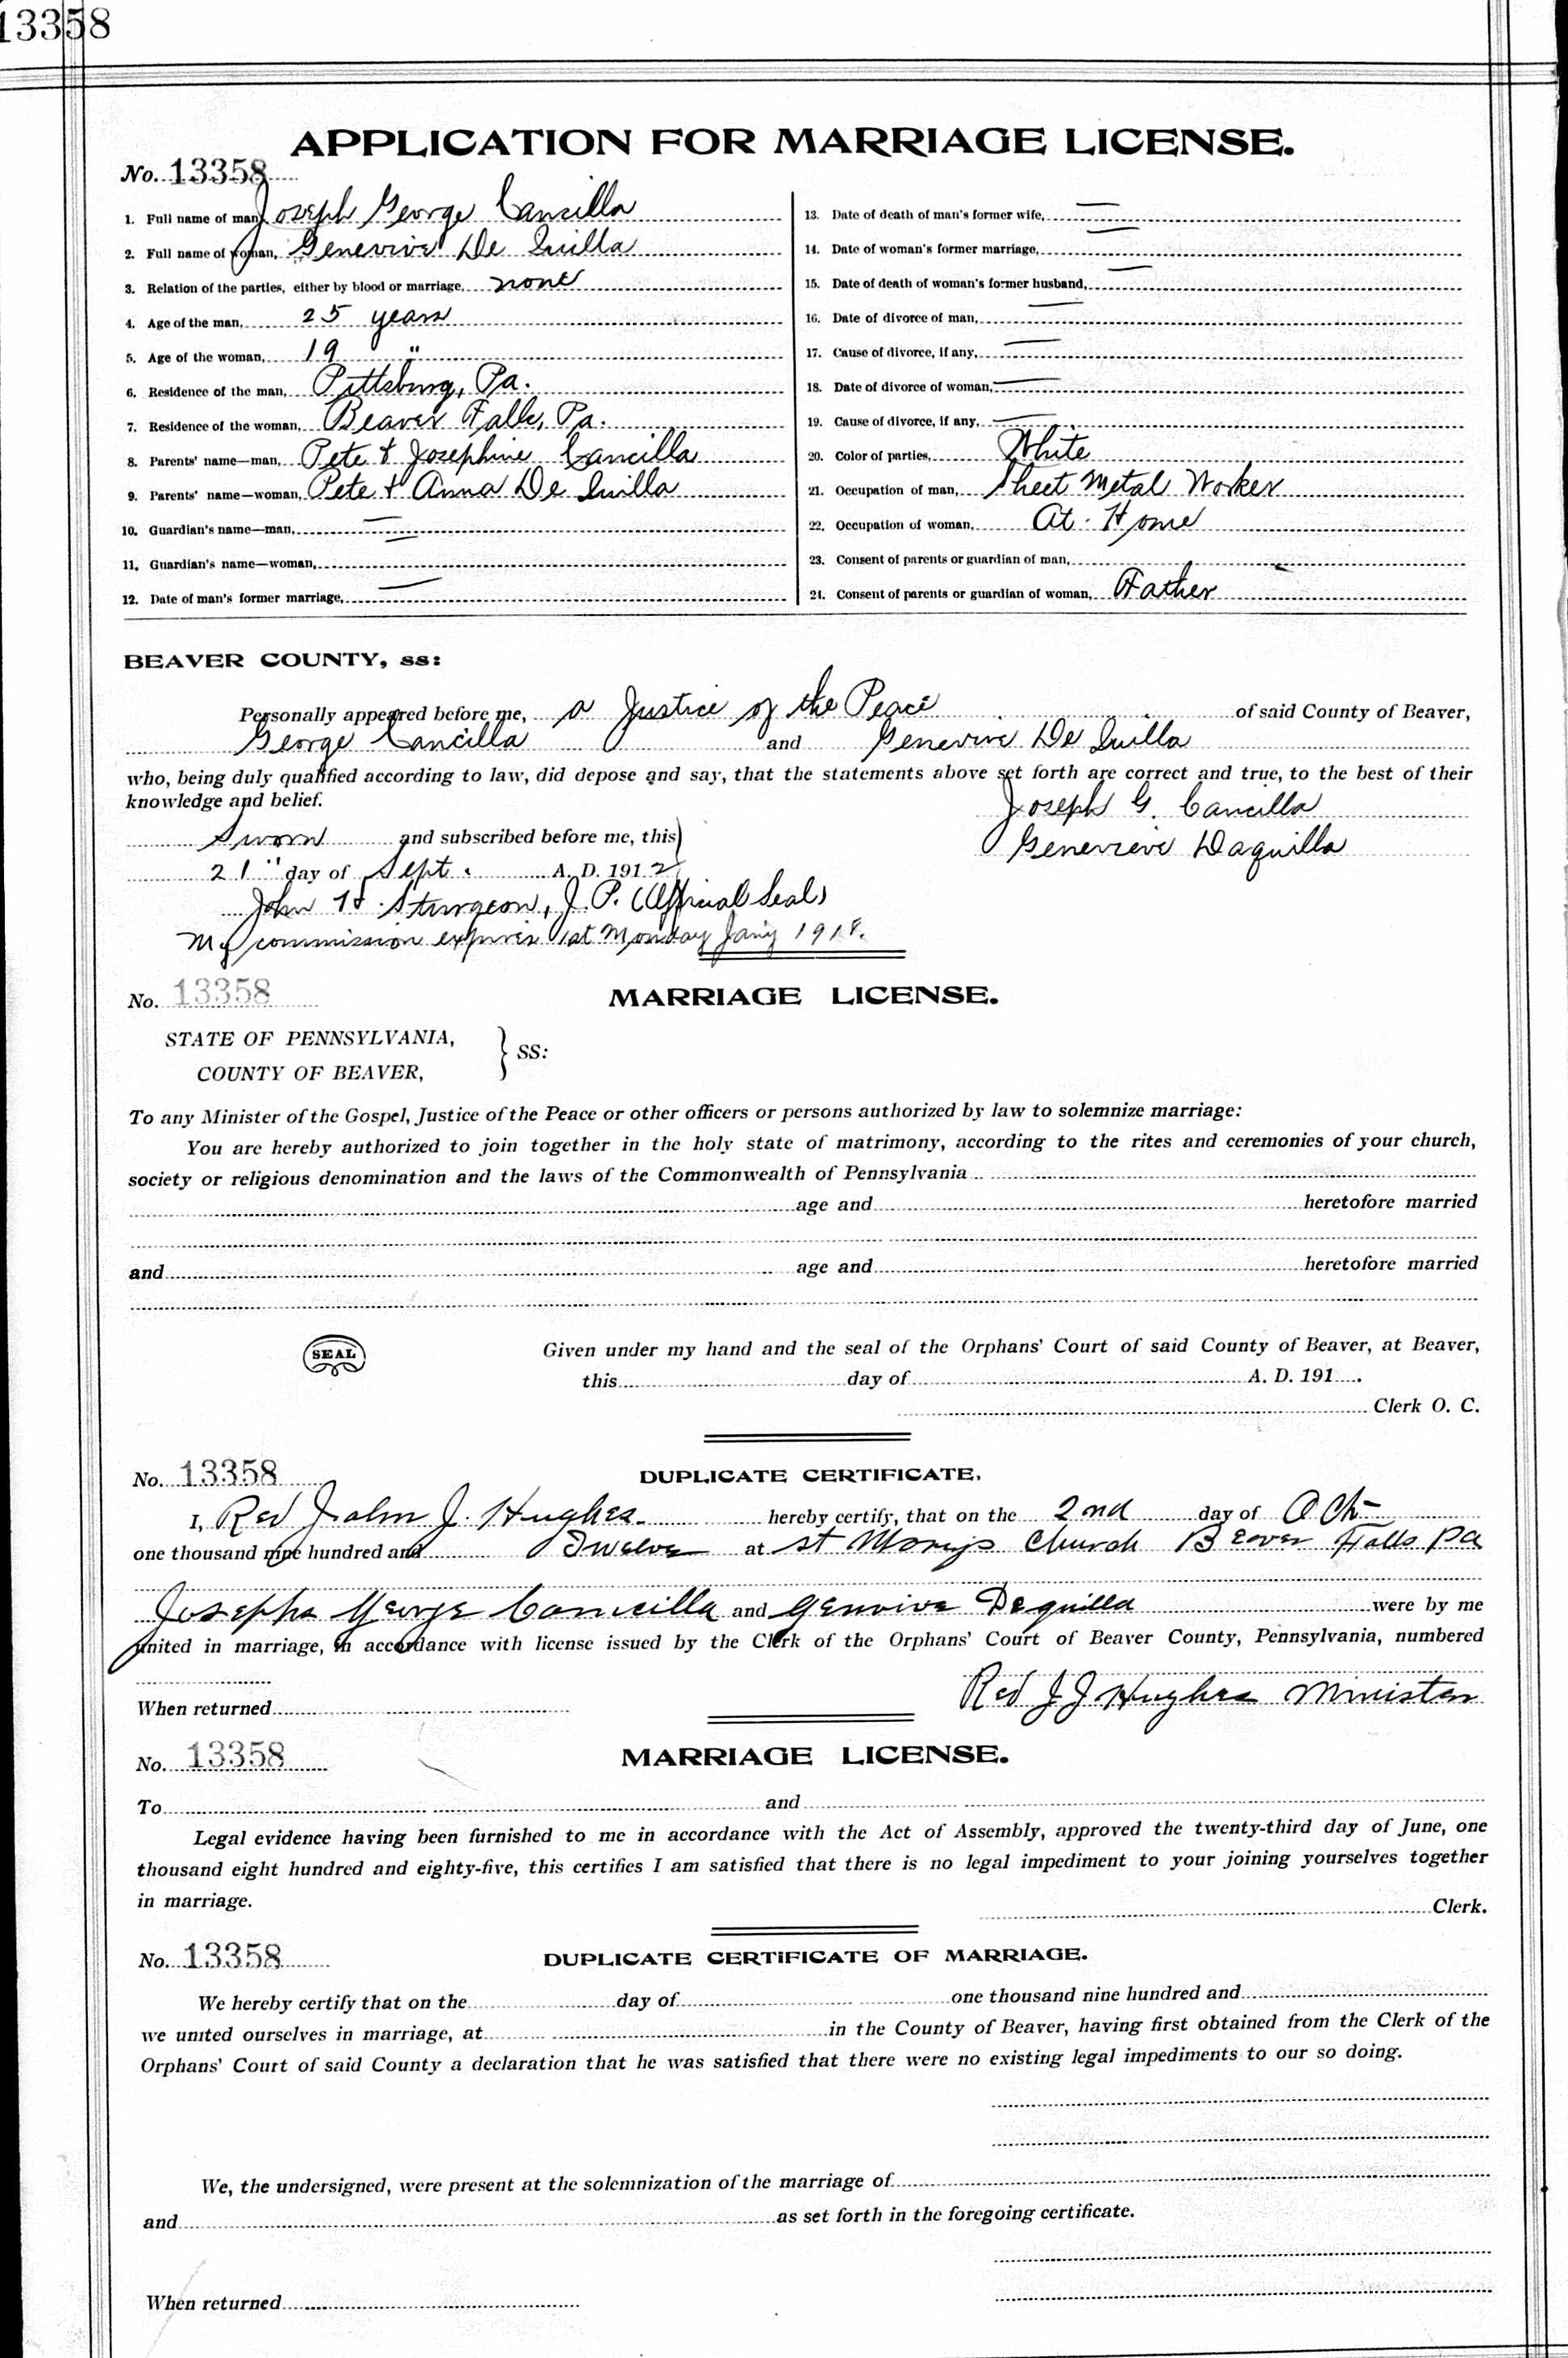 13358
APPLICATION FOR MARRIAGE LICENSE.
No. 13358
1. Full name of man, Joseph George Cancilla
2. Full name of woman, Genevive De Quilla
3. Relation of the parties, either by blood or marriage, none
4. Age of the man, 25 years
5. Age of the woman, 19 "
6. Residence of the man, Pittsburg, Pa.
7. Residence of the woman, Beaver Falls, Pa.
8. Parents' name—man, Pete & Josephine Cancilla
9. Parents' name—woman, Pete & Anna De Quilla
10. Guardian's name—man, —
11. Guardian's name—woman, —
12. Date of man's former marriage, —
13. Date of death of man's former wife, —
14. Date of woman's former marriage, —
15. Date of death of woman's former husband, —
16. Date of divorce of man, —
17. Cause of divorce, if any, —
18. Date of divorce of woman, —
19. Cause of divorce, if any, —
20. Color of parties, White
21. Occupation of man, Sheet Metal Worker
22. Occupation of woman, At Home
23. Consent of parents or guardian of man,
24. Consent of parents or guardian of woman, Father
BEAVER COUNTY, ss:
Personally appeared before me, a Justice of the Peace of said County of Beaver,
George Cancilla and Genevive De Quilla
who, being duly qualified according to law, did depose and say, that the statements above set forth are correct and true, to the best of their
knowledge and belief.
Joseph G. Cancilla
Sworn and subscribed before me, this
Genevieve Daquilla
21" day of Sept. A. D. 1912
John H. Sturgeon, J. P. (Official Seal)
My commission expires 1st Monday Jan'y 1918.
No. 13358
MARRIAGE LICENSE.
STATE OF PENNSYLVANIA,
COUNTY OF BEAVER,
} SS:
To any Minister of the Gospel, Justice of the Peace or other officers or persons authorized by law to solemnize marriage:
You are hereby authorized to join together in the holy state of matrimony, according to the rites and ceremonies of your church,
society or religious denomination and the laws of the Commonwealth of Pennsylvania
age and heretofore married
and age and heretofore married
SEAL
Given under my hand and the seal of the Orphans' Court of said County of Beaver, at Beaver,
this day of A. D. 191 .
Clerk O. C.
No. 13358
DUPLICATE CERTIFICATE.
I, Rev John J. Hughes hereby certify, that on the 2nd day of Oct
one thousand nine hundred and Twelve at St Marys Church Beaver Falls Pa
Josepha George Cancilla and Genvive Dequilla were by me
united in marriage, in accordance with license issued by the Clerk of the Orphans' Court of Beaver County, Pennsylvania, numbered
Rev J J Hughes Minister
When returned
No. 13358
MARRIAGE LICENSE.
To and
Legal evidence having been furnished to me in accordance with the Act of Assembly, approved the twenty-third day of June, one
thousand eight hundred and eighty-five, this certifies I am satisfied that there is no legal impediment to your joining yourselves together
in marriage.
Clerk.
No. 13358
DUPLICATE CERTIFICATE OF MARRIAGE.
We hereby certify that on the day of one thousand nine hundred and
we united ourselves in marriage, at in the County of Beaver, having first obtained from the Clerk of the
Orphans' Court of said County a declaration that he was satisfied that there were no existing legal impediments to our so doing.
We, the undersigned, were present at the solemnization of the marriage of
and as set forth in the foregoing certificate.
When returned